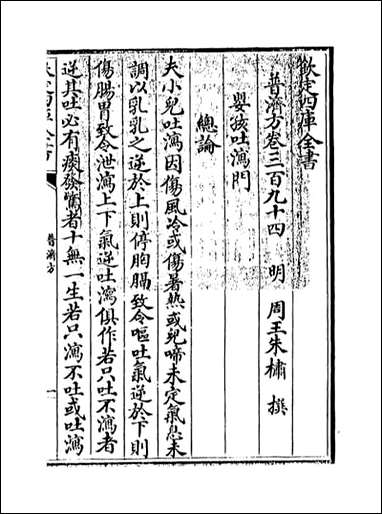 欽定四庫全書
普濟方卷三百九十四 明 周王朱橚 撰
嬰孩吐瀉門
總論
夫小兒吐瀉因傷風冷或傷暑熱或兒啼未定氣息未
調以乳乳之逆於上則停胸膈致令嘔吐氣逆於下則
傷腸胃致令泄瀉上下氣逆吐瀉俱作若只吐不瀉者
逆其吐必有痰發癇者十無一生若只瀉不吐或吐瀉
普濟方
一